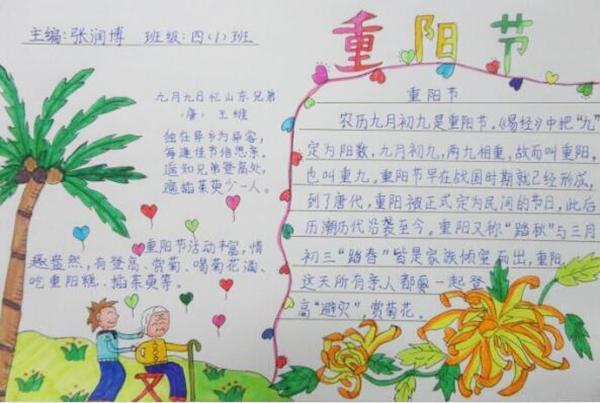 主编：张润博 班级：四（1）班
重阳节
九月九日忆山东兄弟
（唐）王维
独在异乡为异客，
每逢佳节倍思亲。
遥知兄弟登高处，
遍插茱萸少一人。
重阳节活动丰富，情
趣盎然，有登高、赏菊、喝菊花酒、
吃重阳糕、插茱萸等。
重阳节
农历九月初九是重阳节。《易经》中把“九”
定为阳数，九月初九，两九相重，故而叫重阳，
也叫重九，重阳节早在战国时期就已经形成，
到了唐代，重阳被正式定为民间的节日，此后
历朝历代沿袭至今。重阳又称“踏秋”与三月
初三“踏春”皆是家族倾室而出，重阳
这天所有亲人都要一起登
高“避灾”，赏菊花。